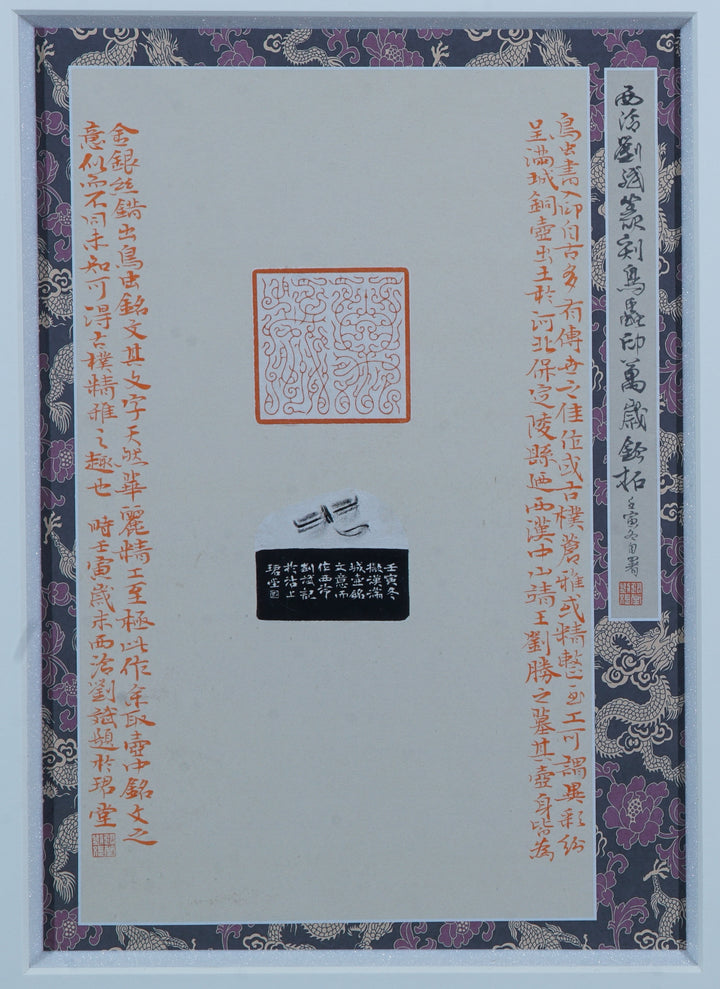 西泠劉篆刻鳥蟲印萬歲鉨拓 壬寅冬自署
鳥虫書入印自古多有傳世之佳作或古樸蒼雅或精整至工可謂異彩紛
呈滿城銅壺出土於河北保定陵縣迺西漢中山靖王劉勝之墓其壺身皆為
金銀絲錯出鳥虫銘文其文字天然華麗精工至極此作余取壺中銘文之
意似而不同未知可得古樸精雅之趣也 時壬寅歲末西泠劉題於珺堂
壬寅冬
擬漢滿
城壺銘
文意而
作西泠
劉記
於沽上
珺堂